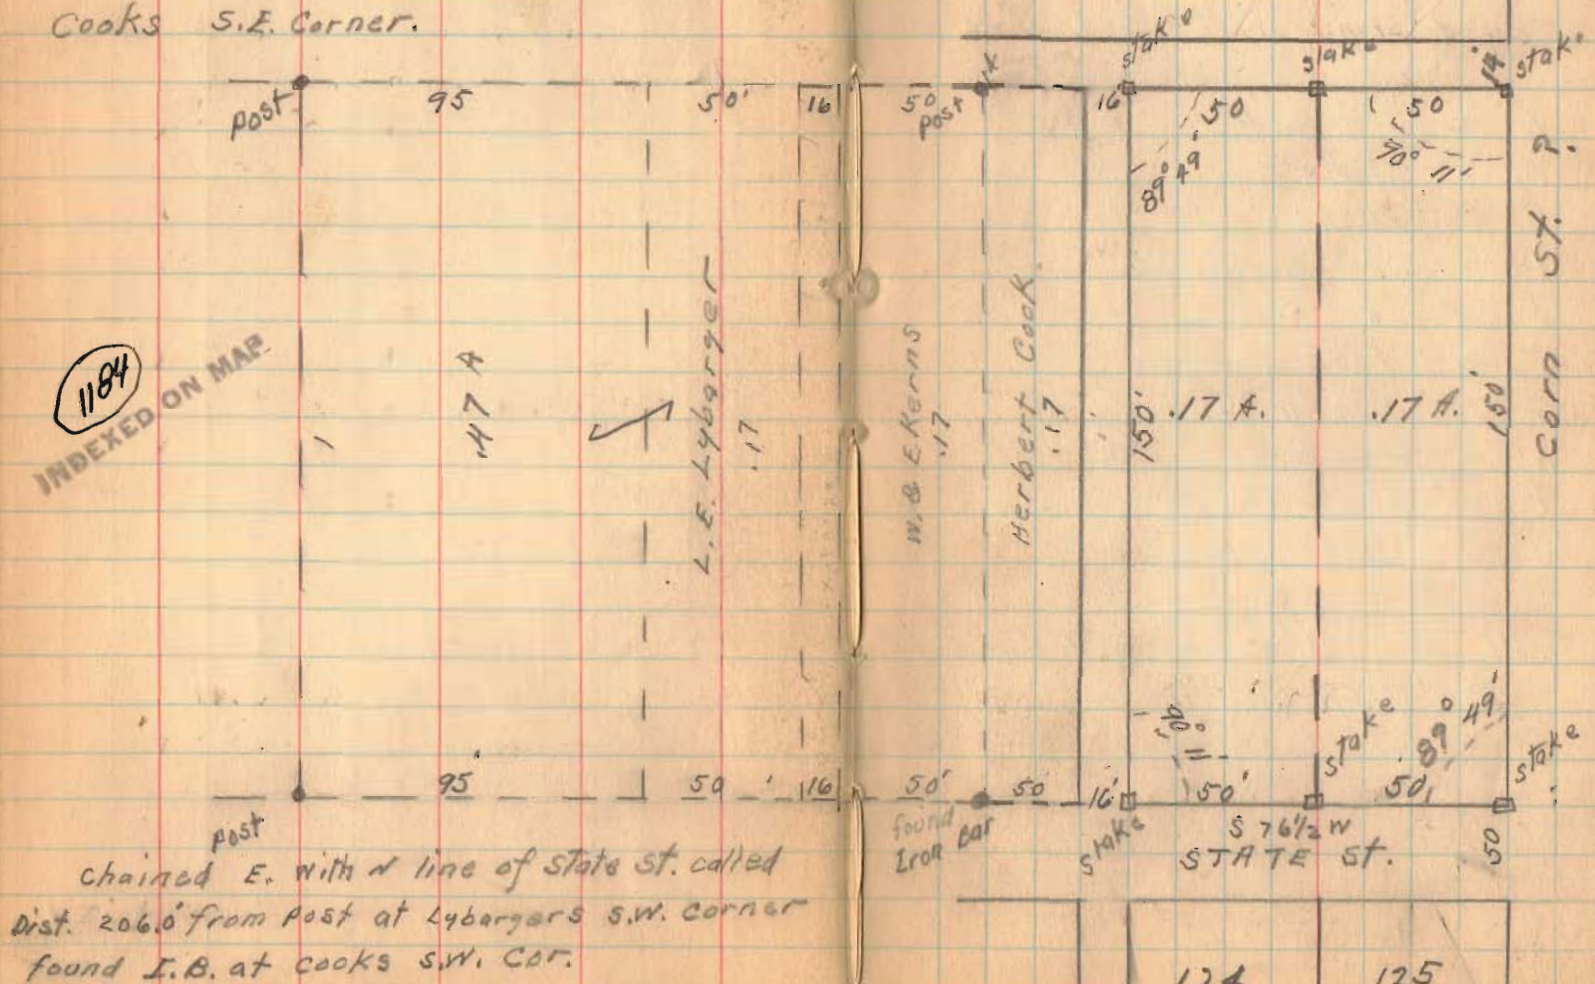 Cooks S.E. Corner.
stake
stake
stake
14
post
95
50'
16
50
post
16'
50
50
14'
89° 49'
90° 11'
Corn St.
1184
INDEXED ON MAP
.47 A
L.E. Lybarger
.17
W. & E Kerns
.17
Herbert Cook
.17
150'
.17 A.
.17 A.
150'
90° 11'
stake
89° 49'
stake
95'
50'
16
50'
50
16'
50'
50'
post
found
Iron Bar
stake
S 76 1/2 W
STATE St.
50
Chained E. with N line of State St. called
Dist. 206.0' from post at Lybargers S.W. corner
found I.B. at Cooks S.W. Cor.
124
125